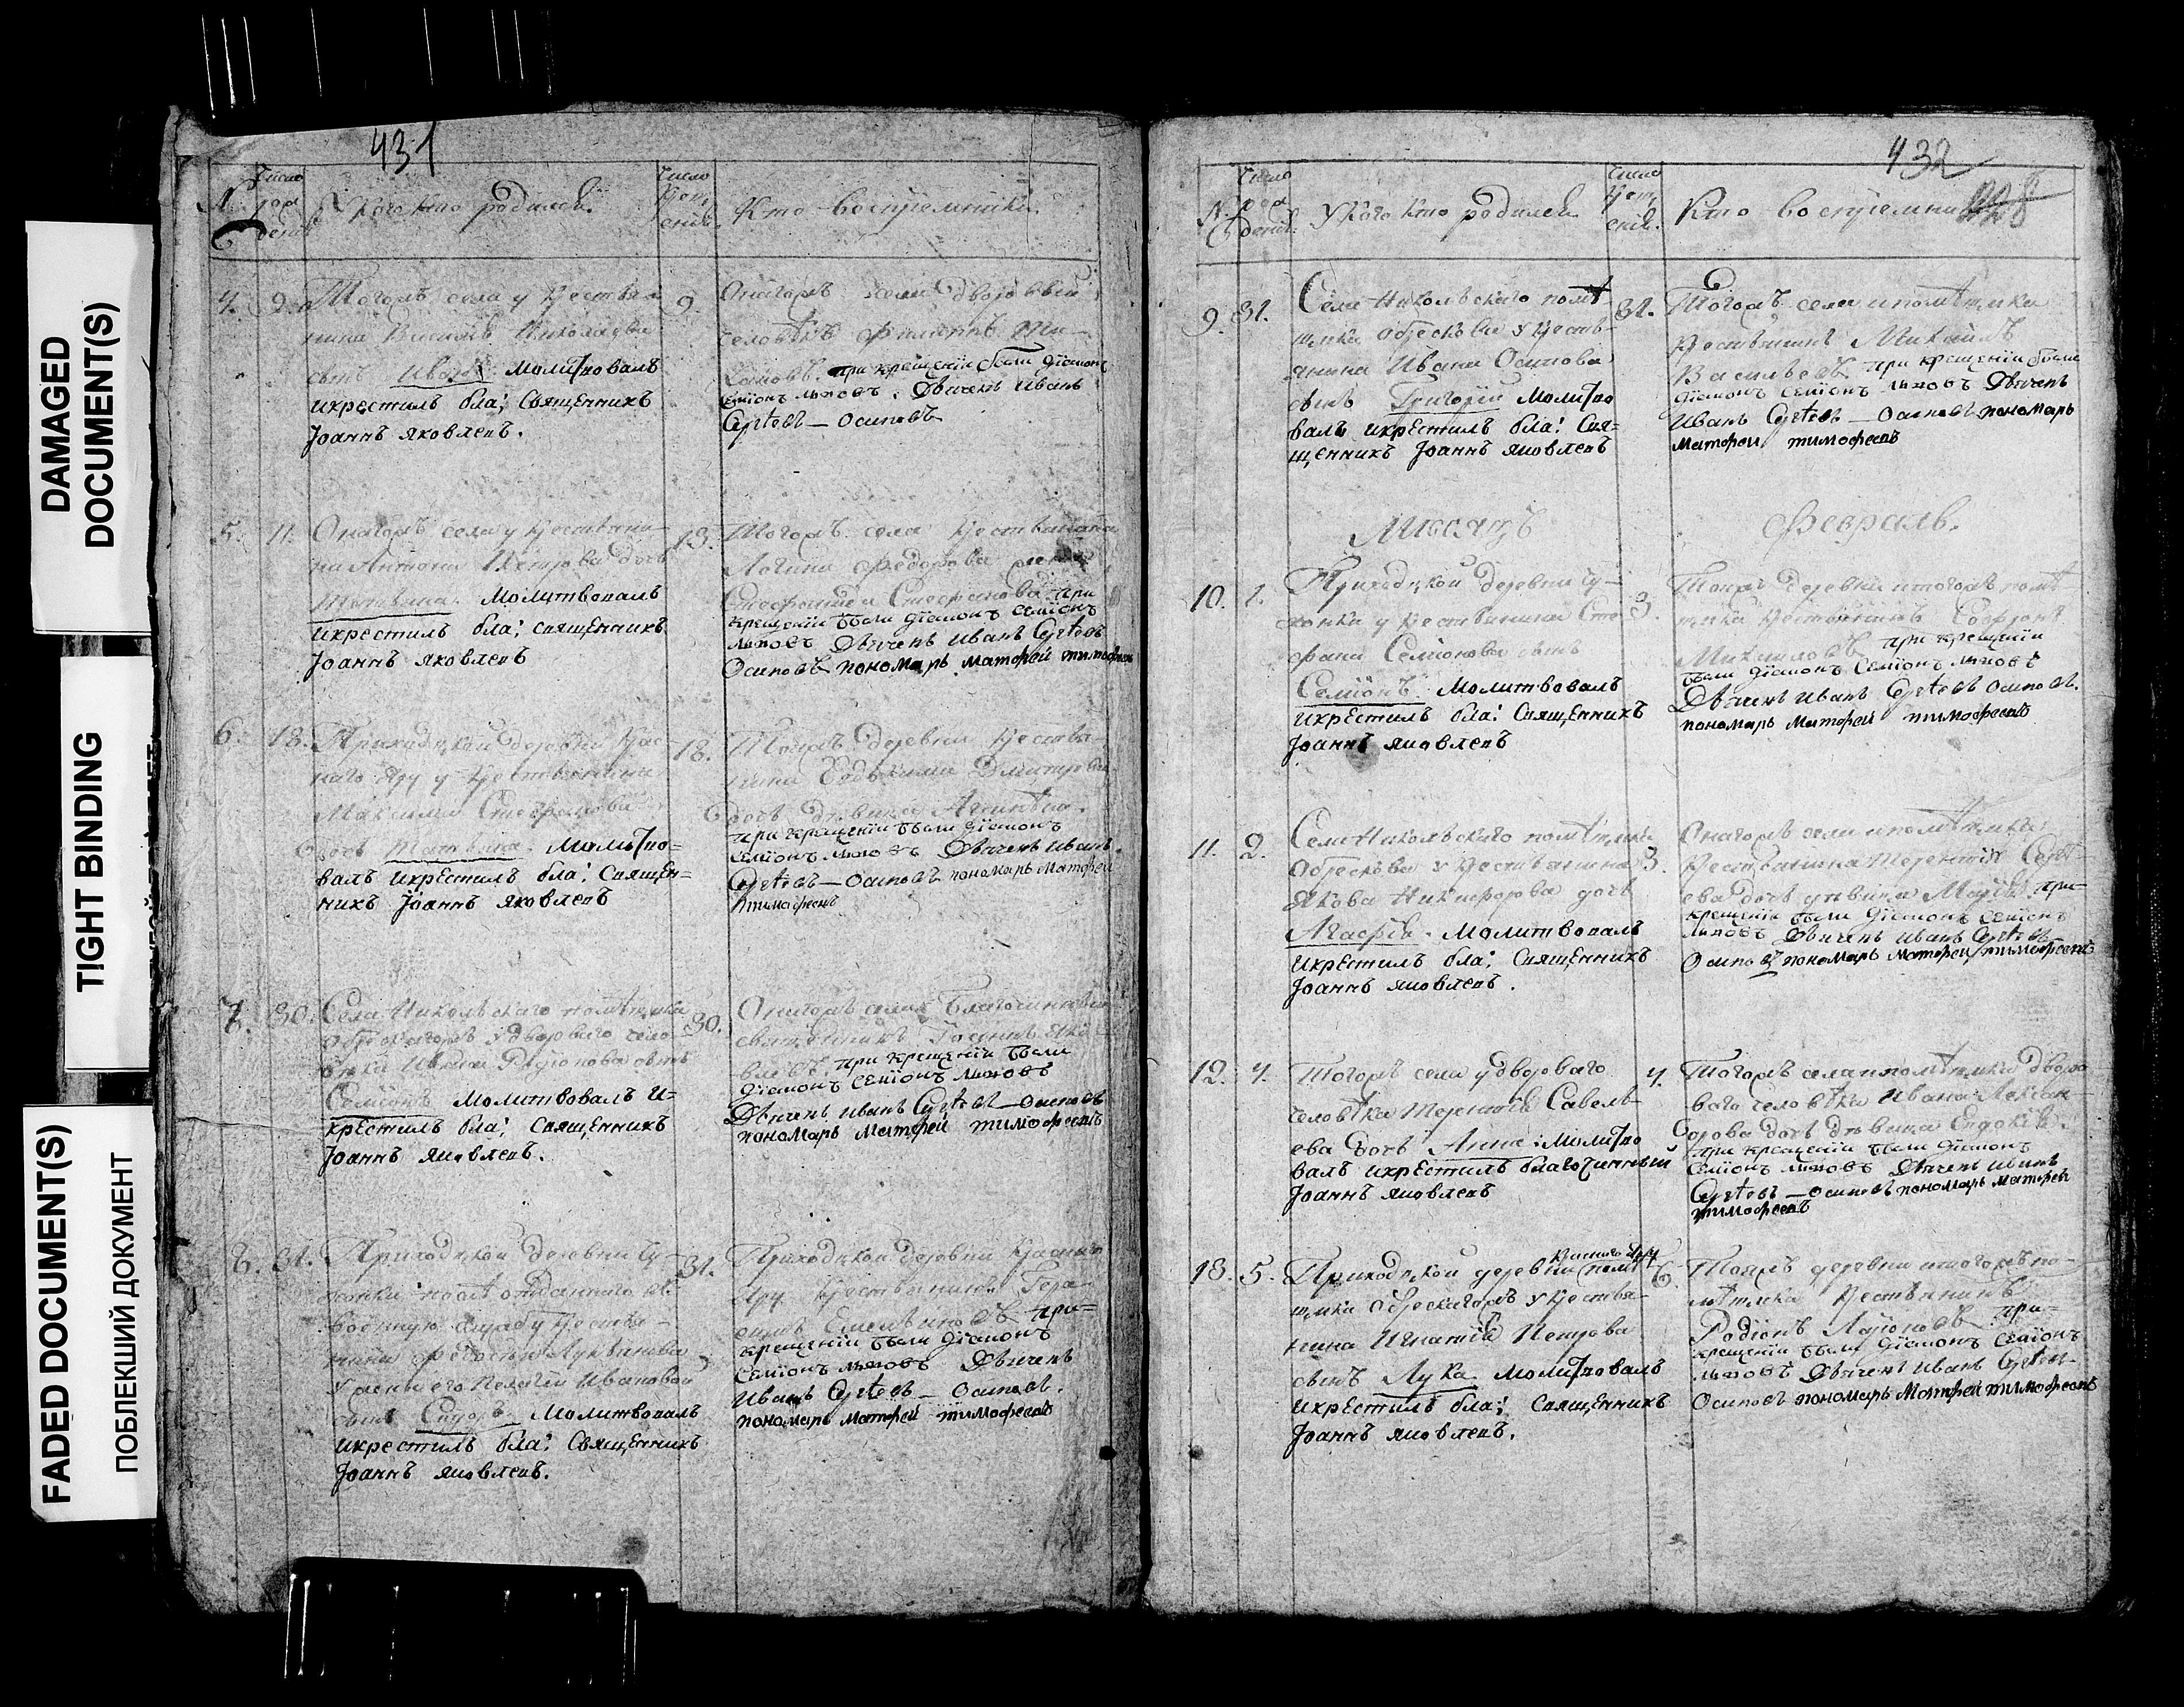 DAMAGED
DOCUMENT(S)
TIGHT BINDING
FADED DOCUMENT(S)
ПОБЛЕКШИЙ ДОКУМЕНТ
431
№
Число
рож
дені
У Кого кто родился.
Число
Крещ
енія.
Кто воспріемники.
4. 9.
Тогожъ села у Крестья
нина Василья Николаева
сынъ Иванъ Молитвовалъ
икрестилъ бла: Священникъ
Іоаннъ Яковлевъ.
9.
Онагожъ села дворовый
человѣкъ Филиппъ
при крещеніи были діаконъ
Семіонъ Львовъ. Дьячекъ Иванъ
Сергѣевъ — Осиповъ
5. 11.
Онагожъ села у Крестьяни
на Антона Петрова дочь
Татьяна. Молитвовалъ
икрестилъ бла: священникъ
Іоаннъ Яковлевъ
13.
Тогожъ села Крестьянина
Логина Федорова
Стефанида Стефанова при
крещеніи были діаконъ Семіонъ
Львовъ Дьячекъ Иванъ Сергѣевъ
Осиповъ пономарь Матфей тимофеевъ
6. 18.
Приходской деревни Крас
наго Яру у Крестьянина
Максима Стефанова
дочь Татьяна. Молитво=
валъ икрестилъ бла: Священ=
никъ Іоаннъ Яковлевъ
18.
Тоежъ деревни Крестья
нина Евдокима Дмитріева
дочь дѣвица
при крещеніи были діаконъ
Семіонъ Львовъ Дьячекъ Иванъ
Сергѣевъ — Осиповъ пономарь Матфей
тимофеевъ
7. 30.
Села Никольскаго помѣщика
Обрескагожъ у двороваго чело
вѣка Ивана Родіонова сынъ
Семіонъ Молитвовалъ и=
крестилъ бла: Священникъ
Іоаннъ Яковлевъ.
30.
Онагожъ села Благочинный
священникъ Іоаннъ Яко
влевъ. при крещеніи были
діаконъ Семіонъ Львовъ
Дьячекъ Иванъ Сергѣевъ — Осиповъ
пономарь Матфей тимофеевъ
8. 31.
Приходской деревни
послѣ отданнаго въ
военную службу Крестья
нина
у жены его Пелагеи Ивановой
сынъ Сидоръ Молитвовалъ
икрестилъ бла: Священникъ
Іоаннъ Яковлевъ.
31.
Приходской деревни Краснаго
Яру Крестьянинъ
при=
крещеніи были діаконъ
Семіонъ Львовъ Дьячекъ
Иванъ Сергѣевъ — Осиповъ.
пономарь Матфей тимофеевъ
432
№
Число
рож
деній.
У Кого кто родился
Число
Крещ
енія.
Кто воспріемники
9. 31.
Села Никольскаго помѣ
щика Обрескова у Кресть=
янина Ивана Осипова
сынъ Григорій Молитво
валъ икрестилъ бла: Свя=
щенникъ Іоаннъ Яковлевъ
31.
Тогожъ села ипомѣщика
Крестьянинъ Михайлъ
Васильевъ при крещеніи были
діаконъ Семіонъ Львовъ Дьячекъ
Иванъ Сергѣевъ — Осиповъ пономарь
Матфей тимофеевъ
Мѣсяцъ Февраль.
10. 1.
Приходской деревни
у Крестьянина Сте
фана Семіонова сынъ
Семіонъ. Молитвовалъ
икрестилъ бла: Священникъ
Іоаннъ Яковлевъ
3.
Тоежъ деревни итогожъ помѣ
щика Крестьянинъ Софронъ
Михайловъ при крещеніи
были діаконъ Семіонъ Львовъ
Дьячекъ Иванъ Сергѣевъ Осиповъ.
пономарь Матфей тимофеевъ
11. 2.
Села Никольскаго помѣщика
Обрескова у Крестьянина
Якова Никифорова дочь
Агафія. Молитвовалъ
икрестилъ бла: Священникъ
Іоаннъ Яковлевъ.
3.
Онагожъ села ипомѣщика
Крестьянина Терентія Сергѣ
ева дочь дѣвица Марія при=
крещеніи были діаконъ Семіонъ
Львовъ Дьячекъ Иванъ Сергѣевъ
Осиповъ пономарь Матфей тимофеевъ
12. 4.
Тогожъ села у двороваго
человѣка Терентія Савель
ева дочь Анна: Молитво
валъ икрестилъ благочинный
Іоаннъ Яковлевъ
4.
Тогожъ села ипомѣщика дворо
ваго человѣка Ивана Алексан
дрова дочь дѣвица Евдокія.
при крещеніи были діаконъ
Семіонъ Львовъ Дьячекъ Иванъ
Сергѣевъ — Осиповъ пономарь Матфей
тимофеевъ
13. 5.
Краснаго Яру
Приходской деревни помѣ
щика Обрескагожъ у Крестья=
нина Игнатія Петрова
сынъ Лука Молитвовалъ
икрестилъ бла: Священникъ
Іоаннъ Яковлевъ.
6.
Тоежъ деревни итогожъ по=
мѣщика Крестьянинъ
Родіонъ Ларіоновъ при=
крещеніи были діаконъ Семіонъ
Львовъ Дьячекъ Иванъ Сергѣевъ
Осиповъ пономарь Матфей тимофеевъ